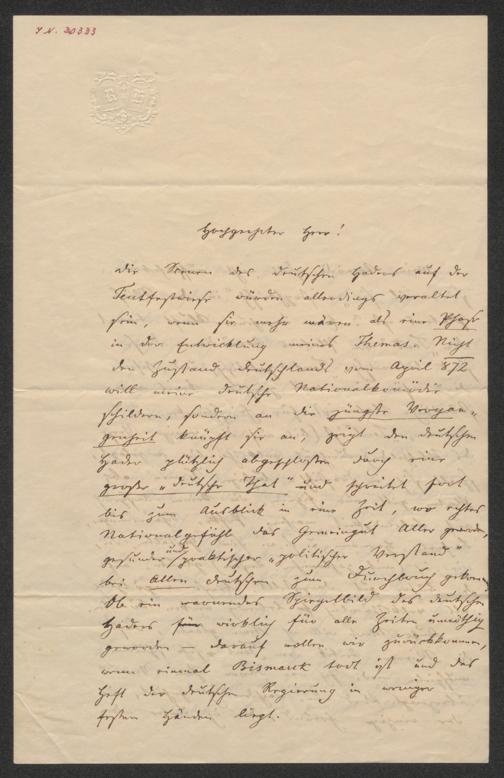 I. N. 20333
Hochgeehrter Herr!
Die Scenen des deutschen Haders auf der
Teutfestwiese würden allerdings veraltet
sein, wenn sie mehr wären als eine Phase
in der Entwicklung meines Themas. Nicht
den Zustand Deutschlands vom April 872
will meine deutsche Nationalkomödie
schildern, sondern an die jüngste Vergan-
genheit knüpft sie an, zeigt den deutschen
Hader plötzlich abgeschlossen durch eine
große "deutsche That" und schreitet fort
bis zum Ausblick in eine Zeit, wo echtes
Nationalgefühl das Gemeingut Aller geworden,
gesunder und praktischer "politischer Verstand"
bei Allen Deutschen zum Durchbruch gekommen.
Ob ein warnendes Spiegelbild des deutschen
Haders für wirklich für alle Zeiten unnöthig
geworden – darauf wollen wir zurückkommen,
wenn einmal Bismarck todt ist und das
Heft der deutschen Regierung in weniger
festen Händen liegt.